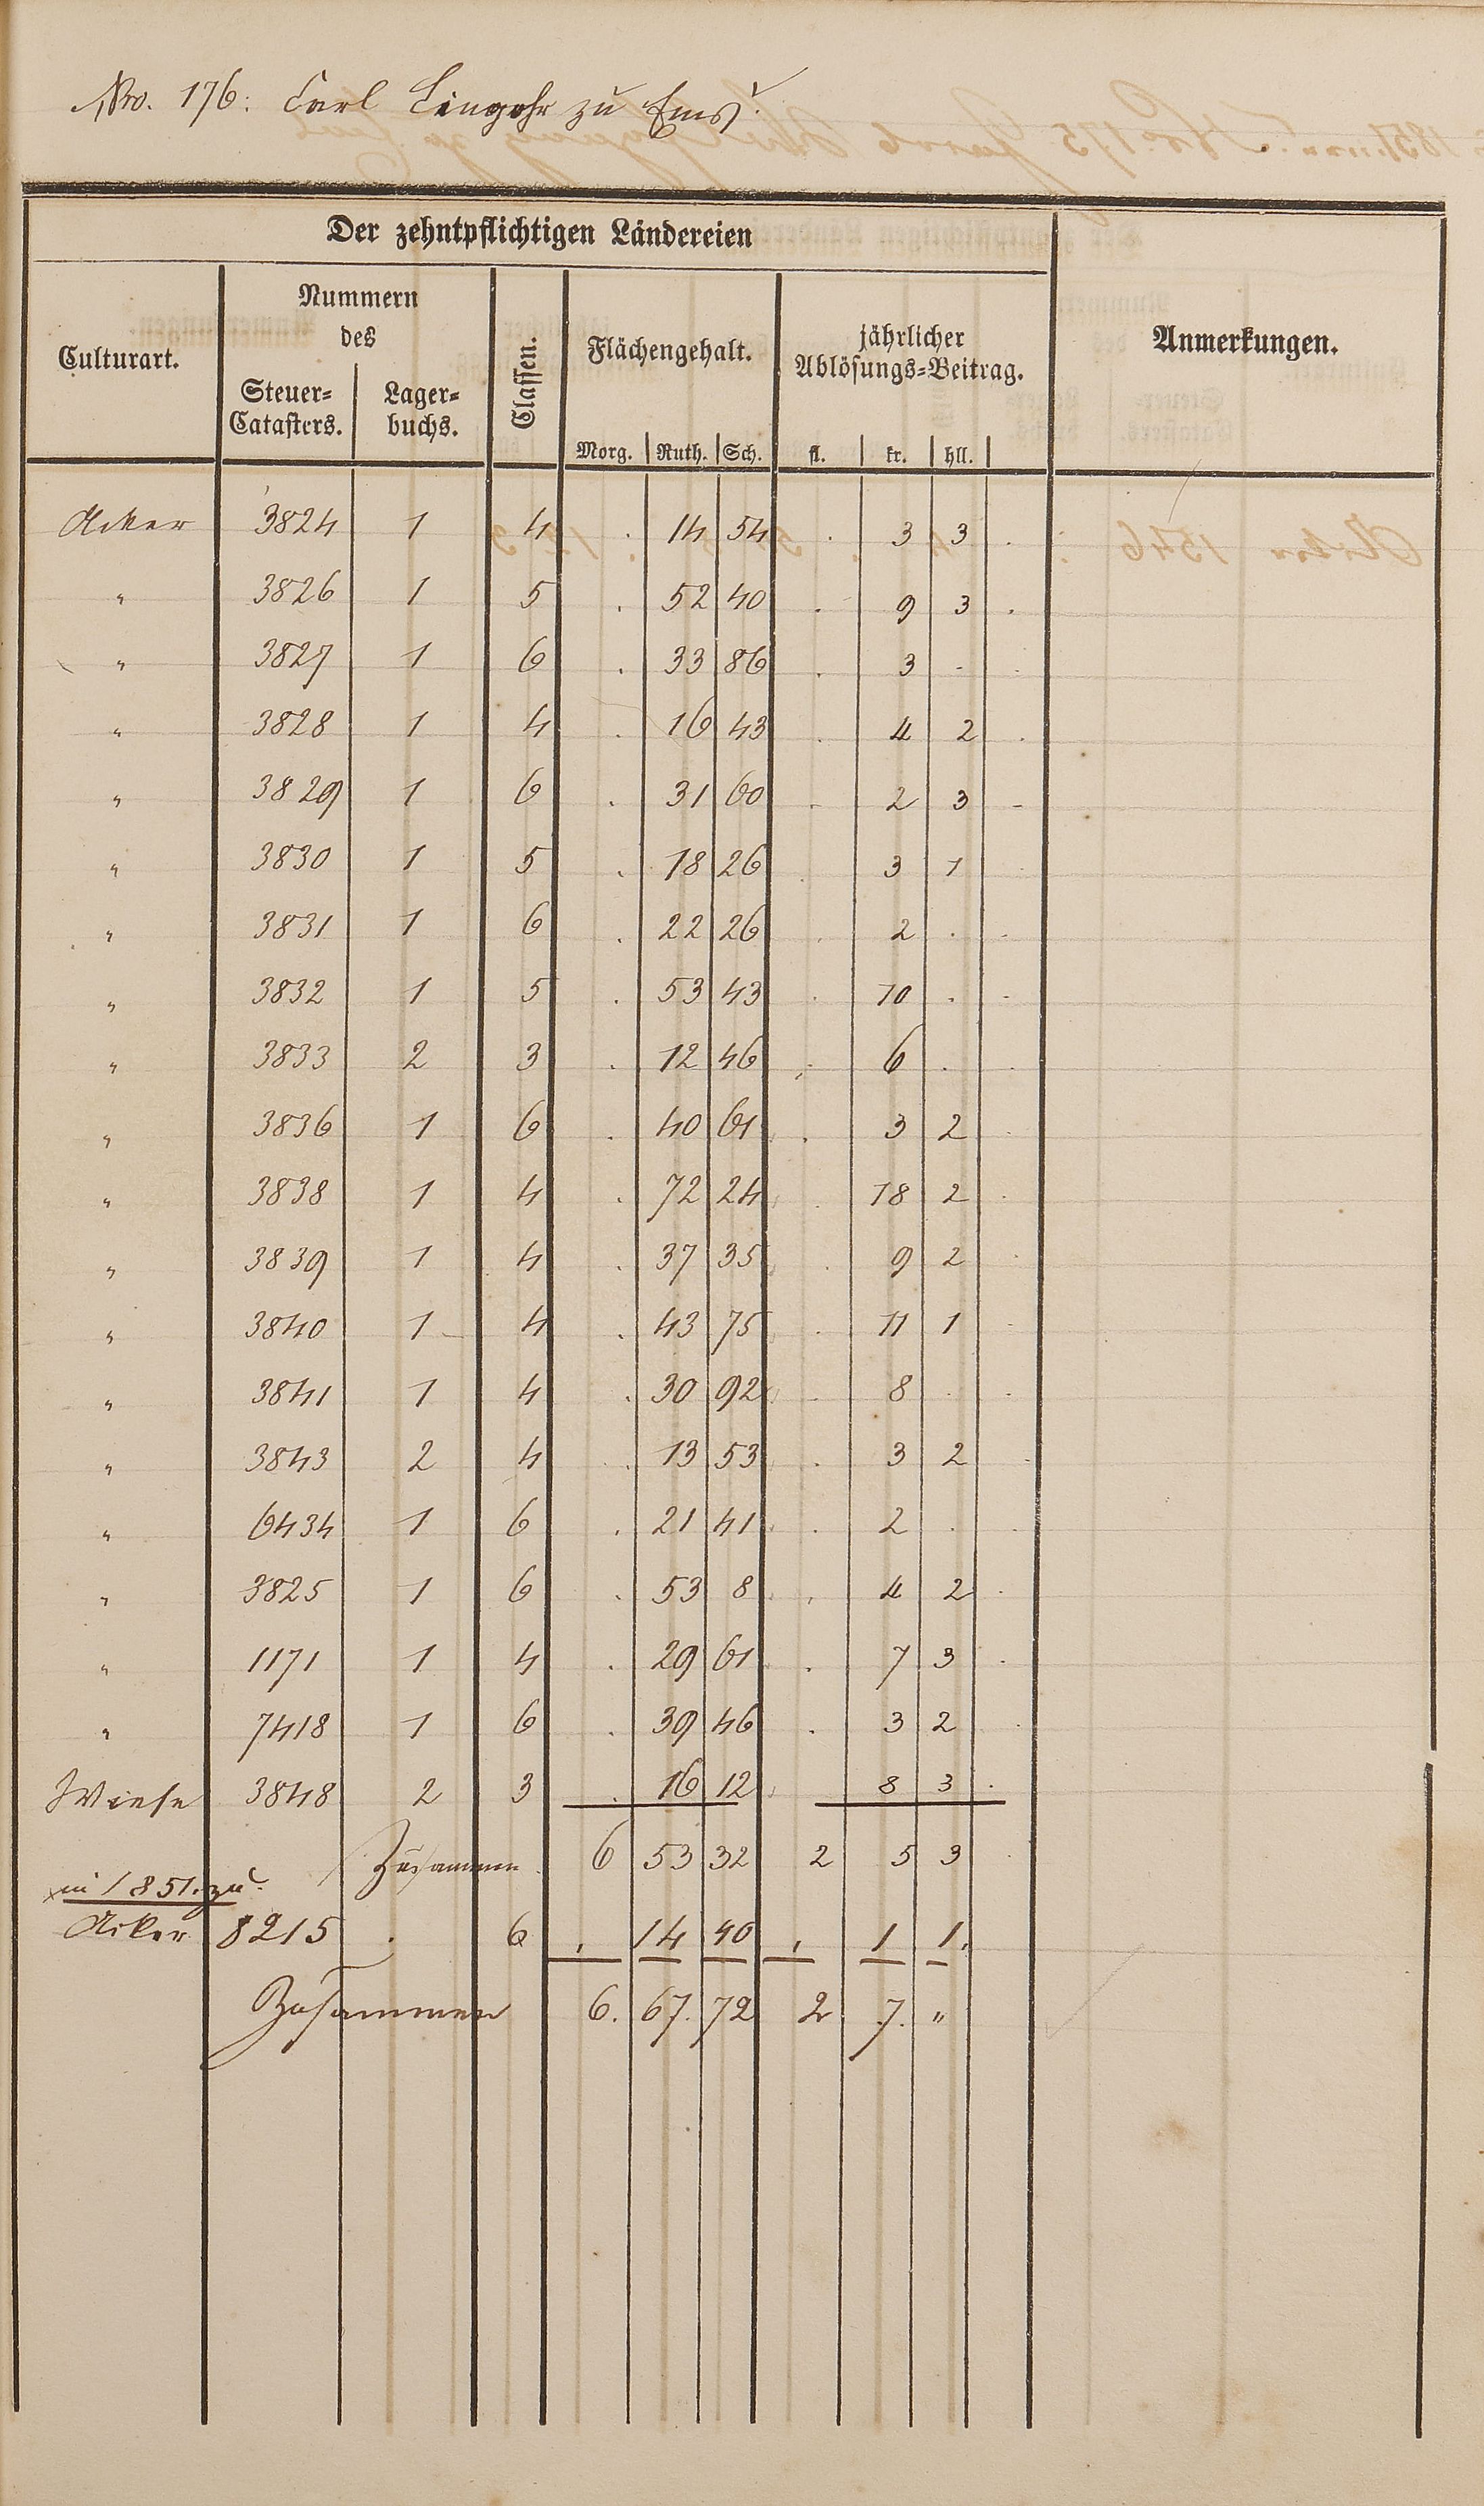 Nro. 176: Carl Lingohr zu Ems.
Der zehntpflichtigen Ländereien
Culturart. Nummern des Steuer=Catasters. Lager=buchs. Classen. Flächengehalt. Morg. Ruth. Sch. jährlicher Ablösungs=Beitrag. fl. kr. hll. Anmerkungen.
Acker 3824 1 4 . 14 54 . 3 3 .
" 3826 1 5 . 52 40 . 9 3 .
" 3827 1 6 . 33 86 . 3 - .
" 3828 1 4 . 16 43 . 4 2 .
" 3829 1 6 . 31 60 . 2 3 -
" 3830 1 5 . 18 26 . 3 1 .
" 3831 1 6 . 22 26 . 2 . .
" 3832 1 5 . 53 43 . 10 . .
" 3833 2 3 . 12 46 . 6 . .
" 3836 1 6 . 40 61 . 3 2 .
" 3838 1 4 . 72 24 . 18 2 .
" 3839 1 4 . 37 35 . 9 2 .
" 3840 1 4 . 43 75 . 11 1 .
" 3841 1 4 . 30 92 . 8 . .
" 3843 2 4 . 13 53 . 3 2 .
" 6434 1 6 . 21 41 . 2 . .
" 3825 1 6 . 53 8 . 4 2 .
" 1171 1 4 . 29 61 . 7 3 .
" 7418 1 6 . 39 46 . 3 2 .
Wiese 3848 2 3 . 16 12 8 3 .
Zusammen 6 53 32 2 5 3
in 1851. zu.
Acker 8215 . 6 . 14 40 . 1 1.
Zusammen 6. 67. 72 2 7. "